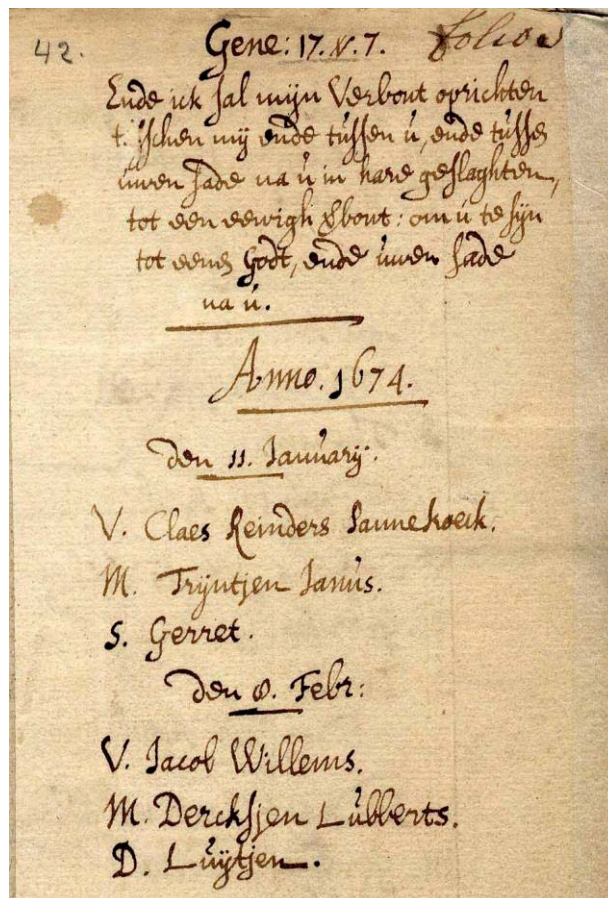 42. Gene: 17. v. 7. folio
Ende ick sal mijn Verbont oprichten
t. sschen mij ende tússen ú, ende tússen
úwen sade na ú in hare geslaghten,
tot een eewigh vbont: om ú te sijn
tot eenen Godt, ende úwen sade
na ú.
Anno. 1674.
den 11. Janúarij.
V. Claes Reinders
M. Trijntjen Jansús.
S. Gerret.
den 8. Febr:
V. Jacob Willems.
M. Dercksjen Lúbberts.
D. Lúijtjen.